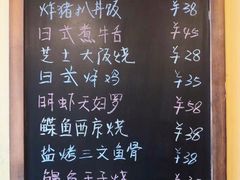 炸猪扒丼饭 ¥38
日式煮牛舌 ¥45
芝士大阪烧 ¥28
日式炸鸡 ¥35
明虾天妇罗 ¥58
鲽鱼西京烧 ¥38
盐烤三文鱼骨 ¥38